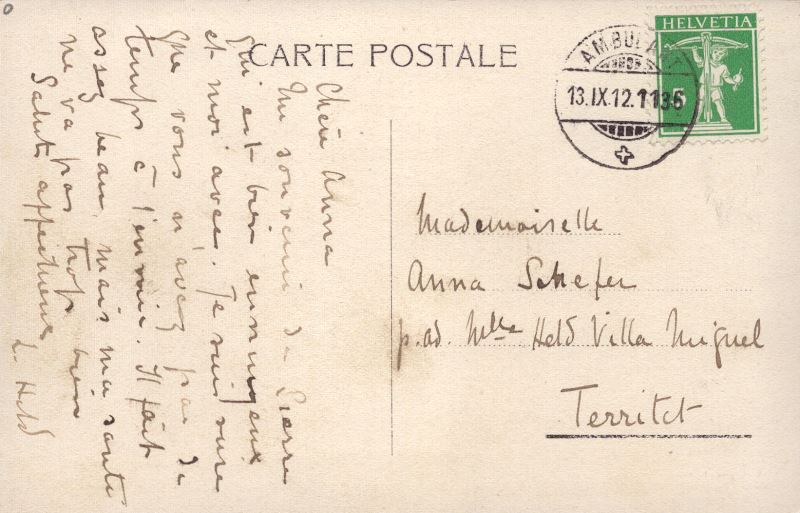 CARTE POSTALE
HELVETIA
5
AMBULANT
13.IX.12.11
Chère Anna
Un souvenir de Pierre
qui est bien ennuyeux
et moi avec. Je suis sure
que vous n'avez pas de
temps à l'envoie. Il fait
assez beau, mais ma santé
ne va pas trop bien
Salut affectueux
L. Held
Mademoiselle
Anna Schefer
p. ad. Mlle Held Villa Miguel
Territet